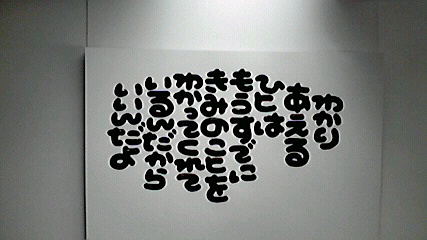 わかり
あえる
ひとは
もうすでに
きみのことを
わかってくれて
いるんだから
いいんだよ